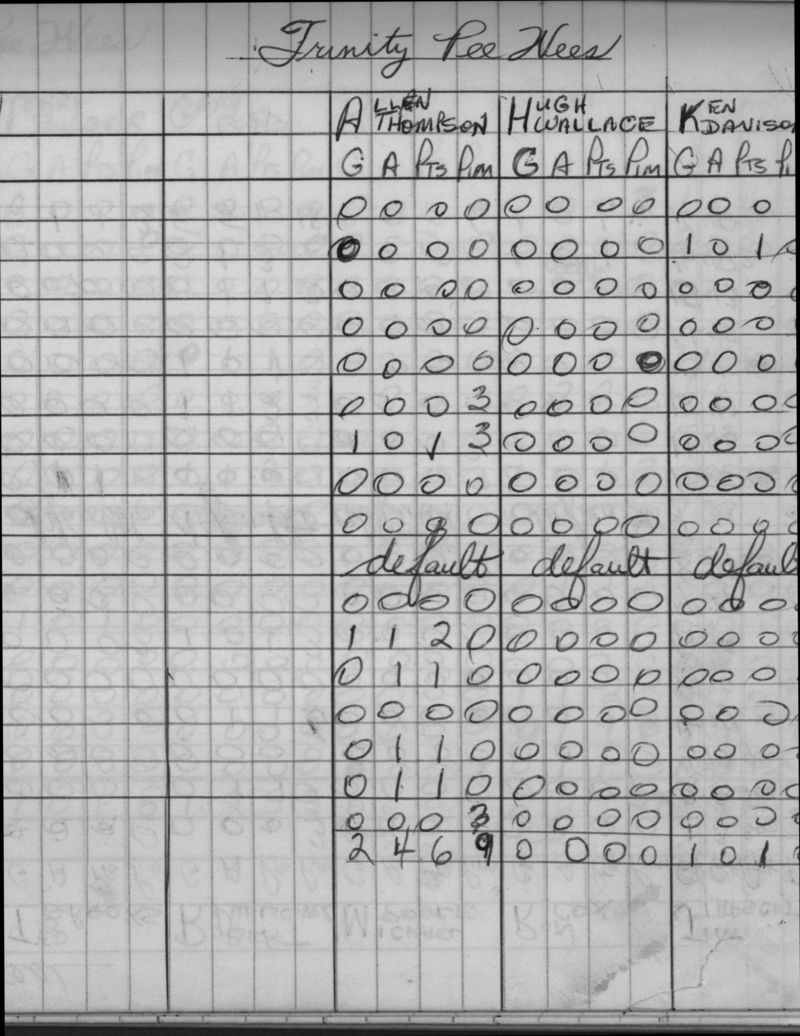 Trinity Pee Wees
ALLEN THOMPSON HUGH WALLACE KEN DAVISON
G A PTS PIM G A PTS PIM G A PTS
0 0 0 0 0 0 0 0 0 0 0
0 0 0 0 0 0 0 0 1 0 1
0 0 0 0 0 0 0 0 0 0 0
0 0 0 0 0 0 0 0 0 0 0
0 0 0 0 0 0 0 0 0 0 0
0 0 0 3 0 0 0 0 0 0 0
1 0 1 3 0 0 0 0 0 0 0
0 0 0 0 0 0 0 0 0 0 0
0 0 0 0 0 0 0 0 0 0 0
default default default
0 0 0 0 0 0 0 0 0 0 0
1 1 2 0 0 0 0 0 0 0 0
0 1 1 0 0 0 0 0 0 0 0
0 0 0 0 0 0 0 0 0 0 0
0 1 1 0 0 0 0 0 0 0 0
0 1 1 0 0 0 0 0 0 0 0
0 0 0 3 0 0 0 0 0 0 0
2 4 6 9 0 0 0 0 1 0 1